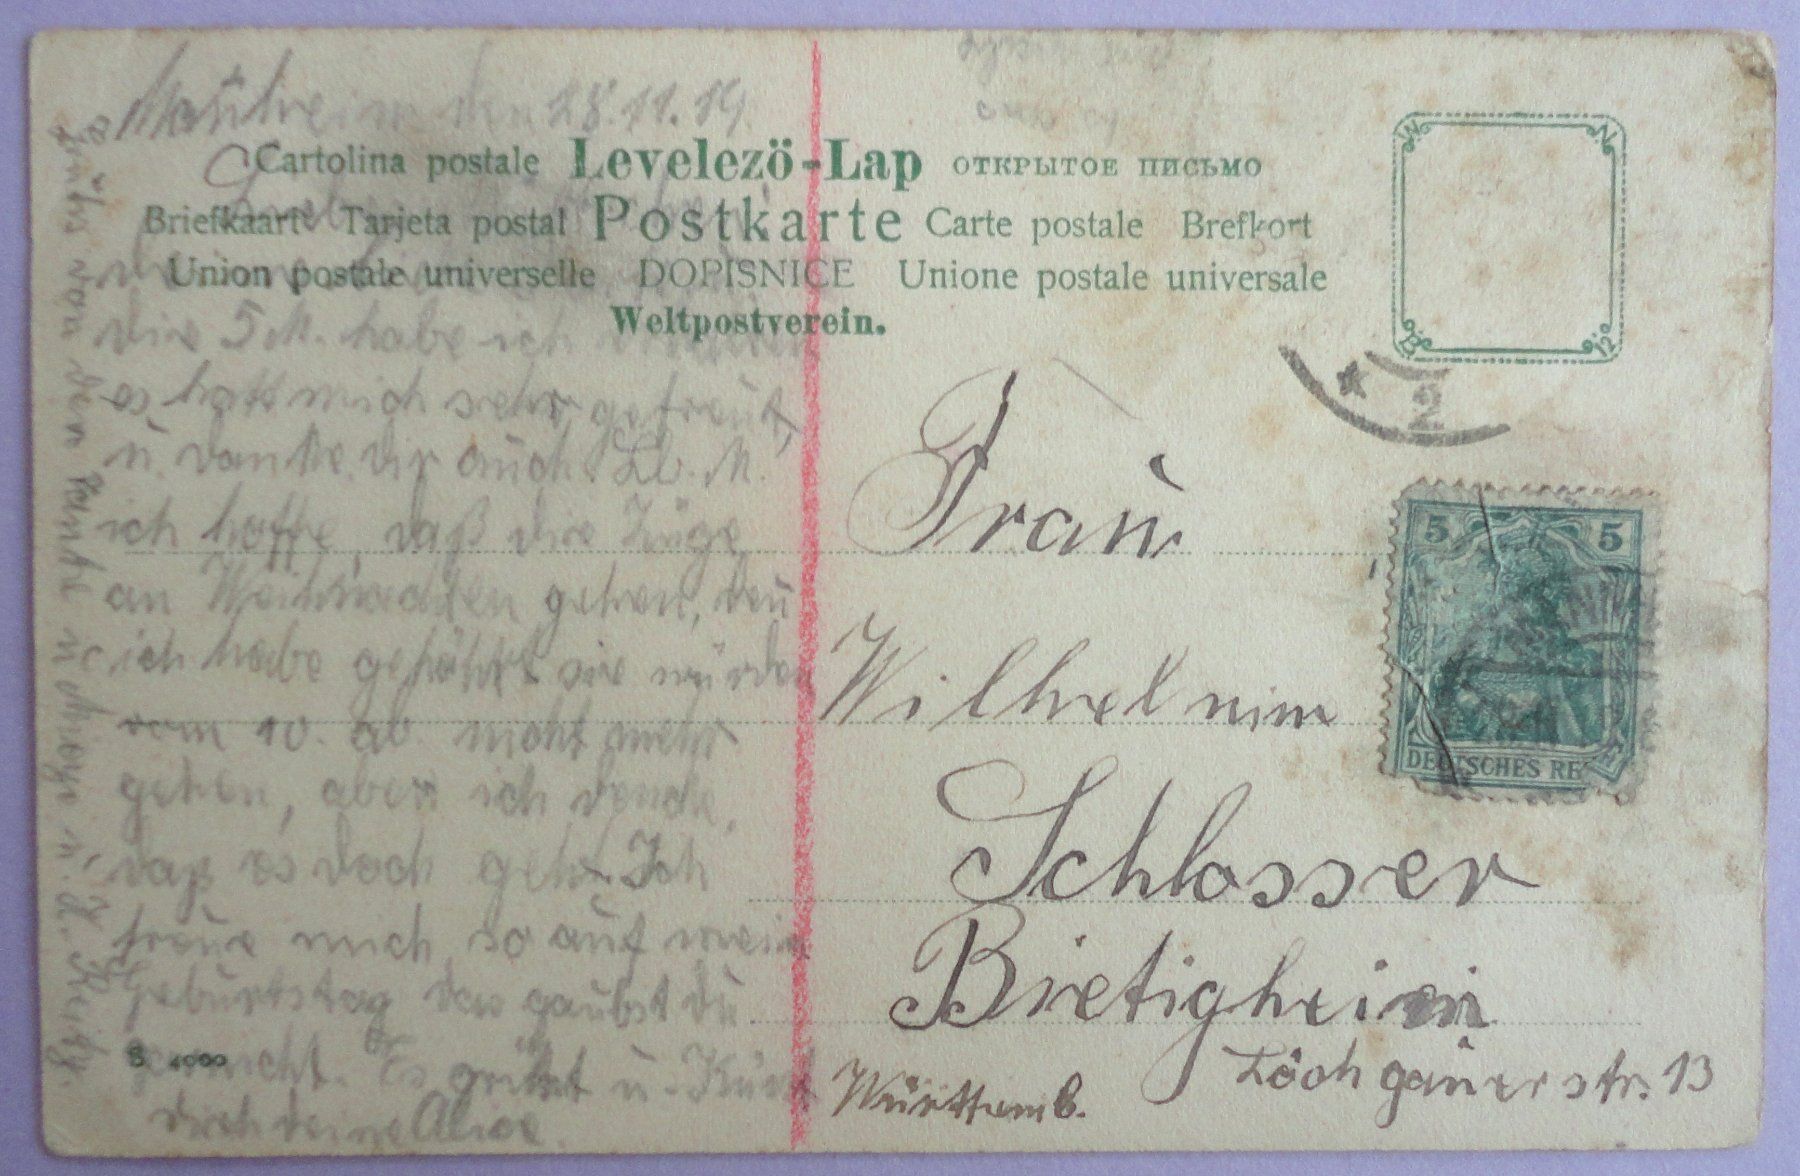 Maüheim den 28.11.19
Cartolina postale Levelezö-Lap ОТКРЫТОЕ ПИСЬМО
Briefkaart Tarjeta postal Postkarte Carte postale Brefkort
Union postale universelle DOPISNICE Unione postale universale
Weltpostverein.
W N
B 12
Liebe
meine
die 5 M. habe ich
es hatt mich sehr gefreut,
u. danke dir auch Lb. M.
ich hoffe, daß die Züge
an Weihnachten gehen, den
ich habe gehöhrt sie würden
vom 10. ab nicht mehr
gehen, aber ich denke,
daß es doch geht. Ich
freue mich so auf mein
Geburtstag das gaubst du
garnicht. Es grüßt u. Küßt
dich deine Alice.
Grüße von den Tante u.
S. 4000
Frau
Wilhelmine
Schlosser
Bietigheim
Löchgauerstr. 13
Württemb.
* 2
5 5
DEUTSCHES RE